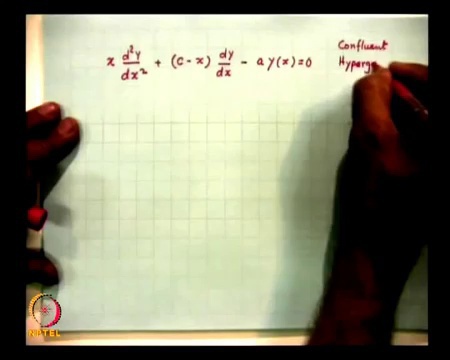 x d²y/dx² + (c - x) dy/dx - a y(x) = 0
Confluent
Hyperge
NPTEL